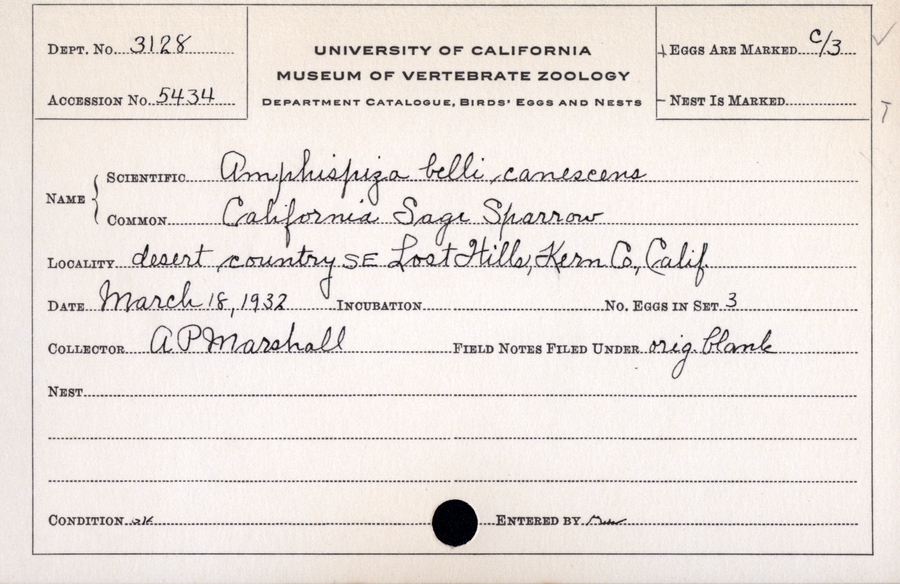 DEPT. No. 3128
ACCESSION No. 5434
UNIVERSITY OF CALIFORNIA
MUSEUM OF VERTEBRATE ZOOLOGY
DEPARTMENT CATALOGUE, BIRDS' EGGS AND NESTS
EGGS ARE MARKED c/3
NEST IS MARKED
NAME
SCIENTIFIC Amphispiza belli canescens
COMMON California Sage Sparrow
LOCALITY desert country SE Lost Hills, Kern Co., Calif.
DATE March 18, 1932 INCUBATION No. EGGS IN SET 3
COLLECTOR A P Marshall FIELD NOTES FILED UNDER orig. blank
NEST
CONDITION ok ENTERED BY